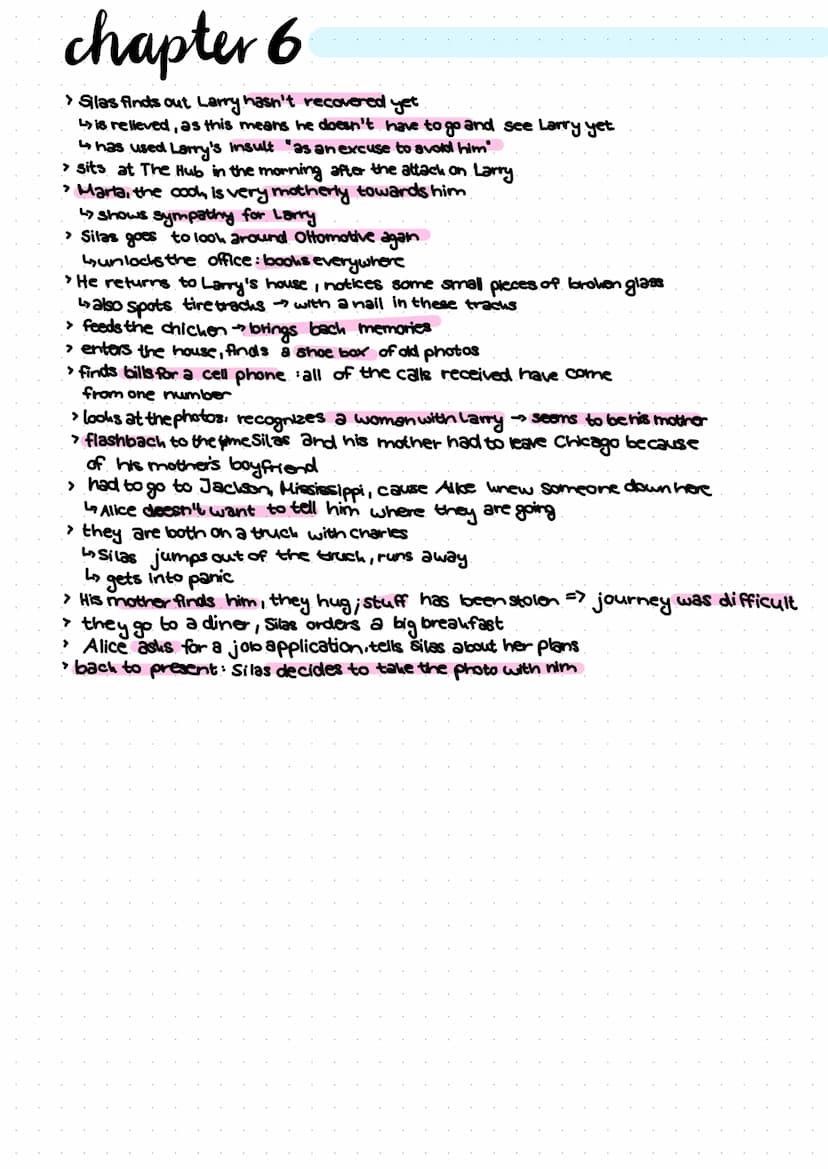 chapter 6
> Silas finds out Larry hasn't recovered yet
↳ is relieved, as this means he doesn't have to go and see Larry yet
↳ has used Larry's insult "as an excuse to avoid him"
> sits at The Hub in the morning after the attack on Larry
> Marla, the cook, is very motherly towards him
↳ shows sympathy for Larry
> Silas goes to look around Ottomotive again
↳ unlocks the office: books everywhere
> He returns to Larry's house, notices some small pieces of broken glass
↳ also spots tire tracks → with a nail in these tracks
> feeds the chicken → brings back memories
> enters the house, finds a shoe box of old photos
> finds bills for a cell phone : all of the calls received have come
from one number
> looks at the photos, recognizes a woman with Larry → seems to be his mother
> flashback to the time Silas and his mother had to leave Chicago because
of his mother's boyfriend
> had to go to Jackson, Mississippi, cause Alice knew someone down here
↳ Alice doesn't want to tell him where they are going
> they are both on a truck with Charles
↳ Silas jumps out of the truck, runs away
↳ gets into panic
> His mother finds him, they hug; stuff has been stolen => journey was difficult
> they go to a diner, Silas orders a big breakfast
> Alice asks for a job application, tells Silas about her plans
> back to present: Silas decides to take the photo with him